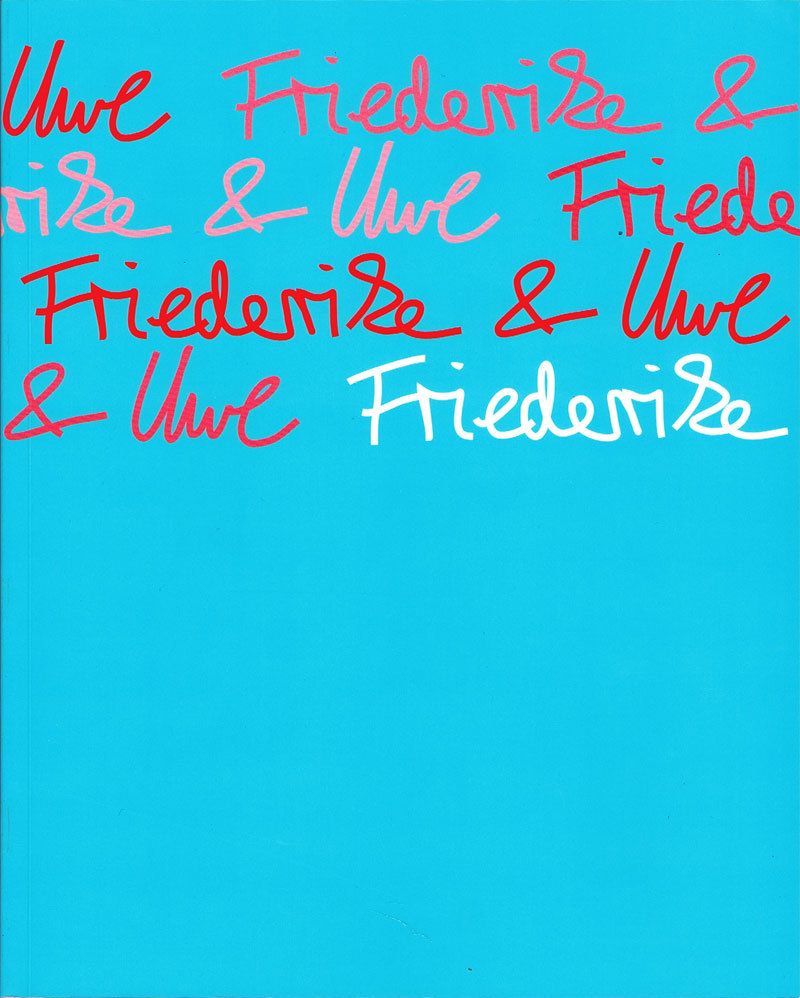 Uwe Friederike &
rike & Uwe Friede
Friederike & Uwe
& Uwe Friederike